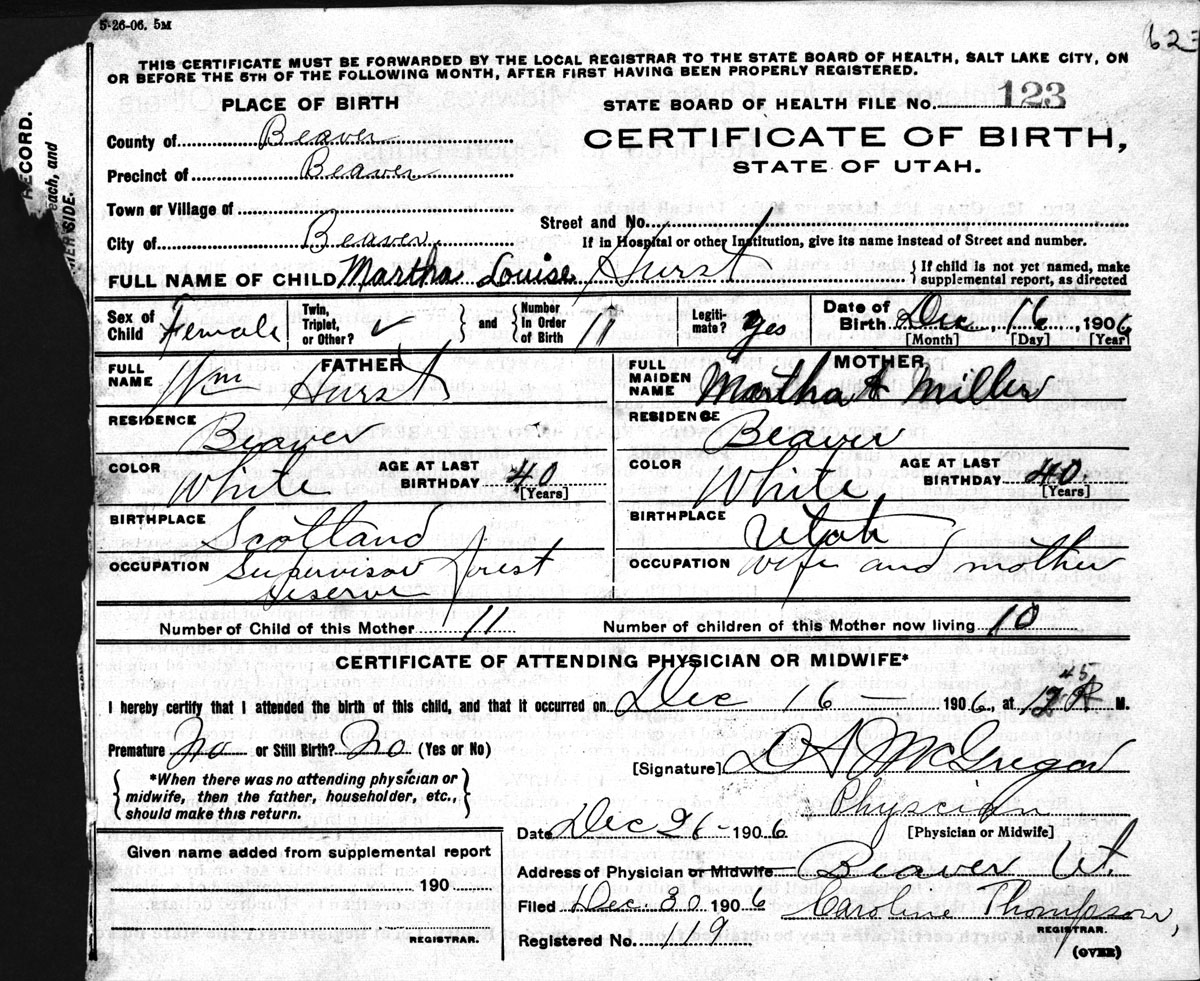 5-26-06. 5M
623
THIS CERTIFICATE MUST BE FORWARDED BY THE LOCAL REGISTRAR TO THE STATE BOARD OF HEALTH, SALT LAKE CITY, ON
OR BEFORE THE 5TH OF THE FOLLOWING MONTH, AFTER FIRST HAVING BEEN PROPERLY REGISTERED.
RECORD.
each, and
SIDE.
PLACE OF BIRTH
STATE BOARD OF HEALTH FILE No. 123
County of Beaver
CERTIFICATE OF BIRTH,
Precinct of Beaver
STATE OF UTAH.
Town or Village of
Street and No.
City of Beaver
If in Hospital or other Institution, give its name instead of Street and number.
FULL NAME OF CHILD Martha Louise Hurst { If child is not yet named, make supplemental report, as directed
Sex of Child Female Twin, Triplet, or Other? ✓ } and { Number in Order of Birth 11 Legitimate? yes Date of Birth Dec, 16, 1906
[Month] [Day] [Year]
FATHER MOTHER
FULL NAME Wm Hurst FULL MAIDEN NAME Martha A Miller
RESIDENCE Beaver RESIDENCE Beaver
COLOR White AGE AT LAST BIRTHDAY 40 [Years] COLOR White AGE AT LAST BIRTHDAY 40 [Years]
BIRTHPLACE Scotland BIRTHPLACE Utah
OCCUPATION Supervisor forest reserve OCCUPATION wife and mother
Number of Child of this Mother 11 Number of children of this Mother now living 10
CERTIFICATE OF ATTENDING PHYSICIAN OR MIDWIFE*
I hereby certify that I attended the birth of this child, and that it occurred on Dec 16 — 1906, at 12 45 A M.
Premature No or Still Birth? No (Yes or No)
[Signature] D A McGregor
*When there was no attending physician or
midwife, then the father, householder, etc.,
should make this return.
Physician
Date Dec 26 - 1906 [Physician or Midwife]
Given name added from supplemental report
Address of Physician or Midwife Beaver Ut.
190
Filed Dec 30 1906 Caroline Thompson,
REGISTRAR.
REGISTRAR.
Registered No. 19
(OVER)